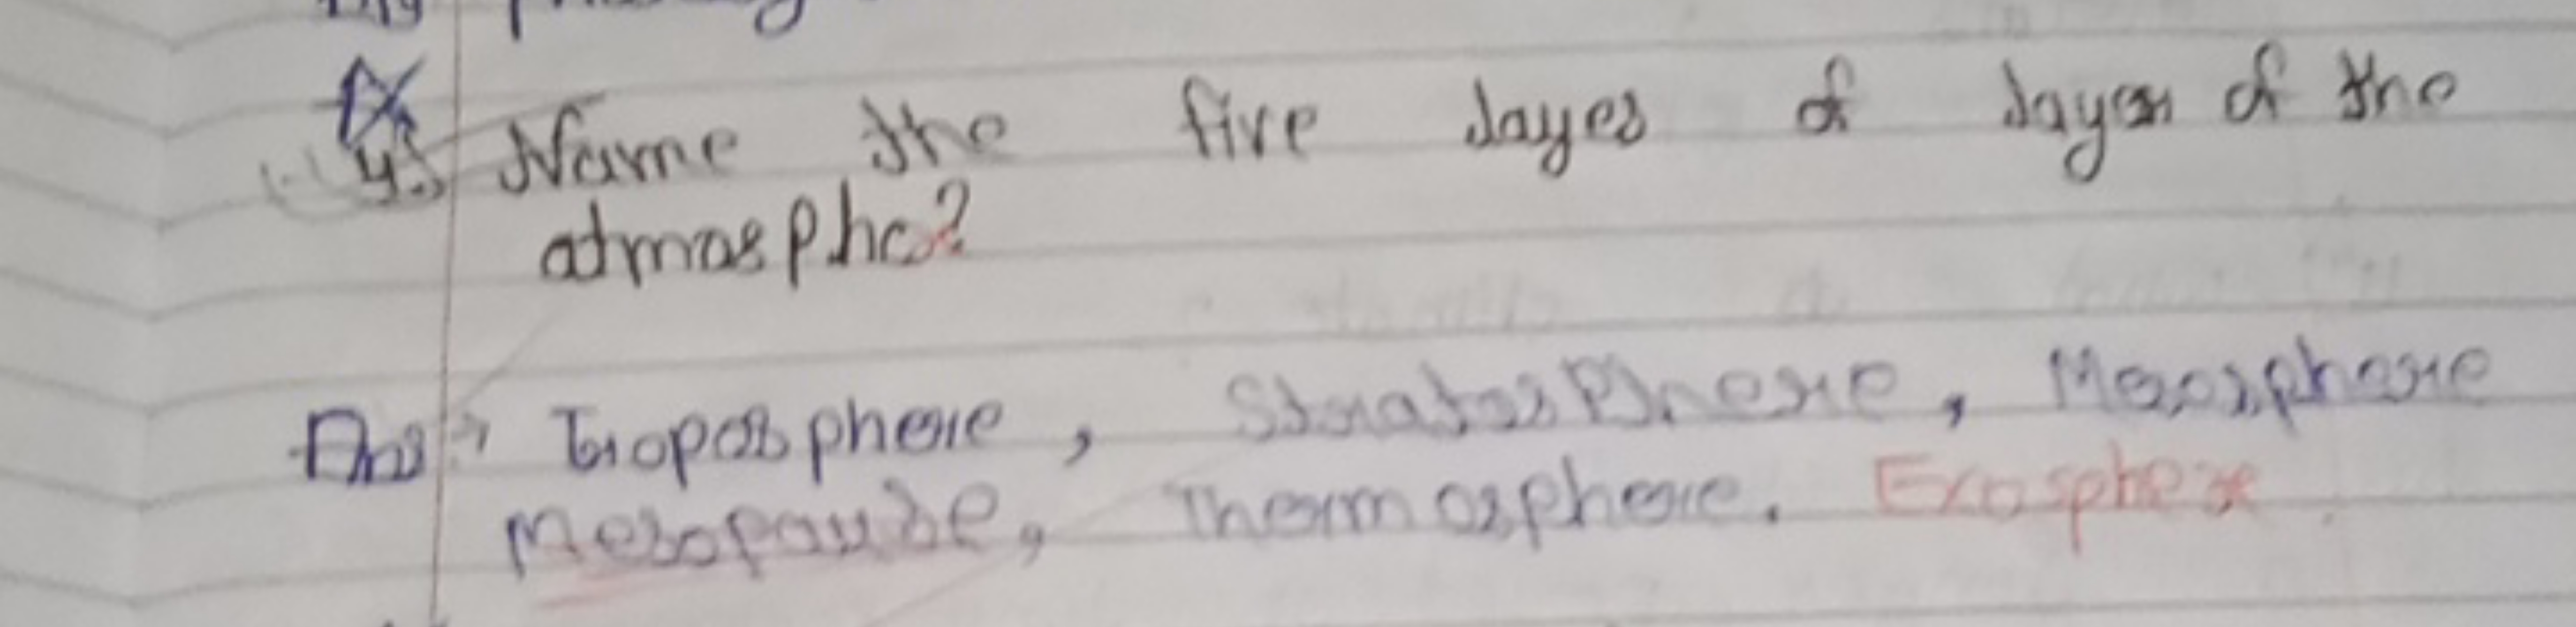 4. Name the five layes of layer of the
atmosphe?
Ans:→ Troposphere, Stratosphere, Mesosphere
Mesopause, Thermosphere. Exosphere